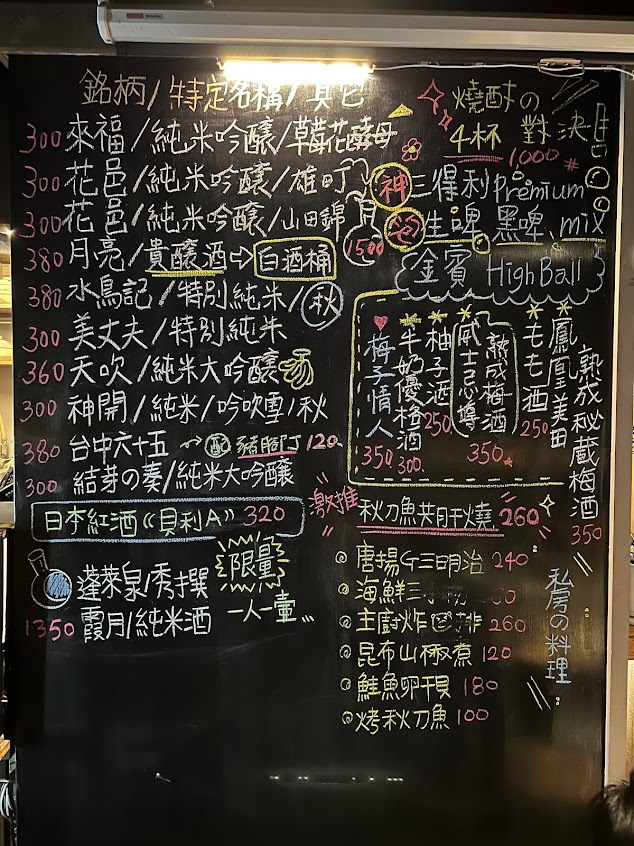 銘柄/特定名稱/其它
300 來福/純米吟釀/韓花酵母
300 花邑/純米吟釀/雄町
300 花邑/純米吟釀/山田錦
1500
380 月亮/貴釀酒⇨白酒桶
380 水鳥記/特別純米/秋
300 美丈夫/特別純米
360 天吹/純米大吟釀
300 神開/純米/吟吹雪/秋
380 台中六十五→配豬腳丁120
300 結芽の奏/純米大吟釀
日本紅酒《貝利A》320
蓬萊泉/秀撰
1350 霞月/純米酒
限量
一人一壺
燒酎の
4杯 對決
1000
神泡
三得利Premium
生啤 黑啤、mix
金賓 HighBall
熟成秘蔵梅酒 350
鳳凰美田
もも酒 250
熟成梅酒
威士忌樽 350
柚子酒 250
牛奶優格酒 300
梅子情人 350
激推
秋刀魚 260
私房の料理
唐揚G三明治 240
海鮮三
主廚炸 排 260
昆布山 煮 120
鮭魚卵干貝 180
烤秋刀魚 100